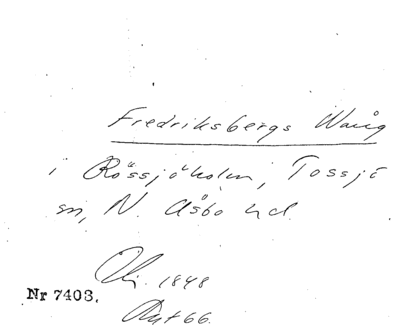 Fredriksbergs Wång
i Rössjöholm, Tossjö
sn, N. Åsbo hd.
1848
Nr 7403.
Akt 66.